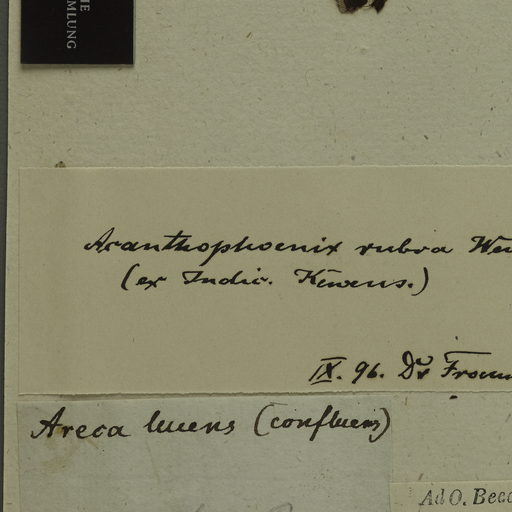 Acanthophoenix rubra
(ex Indic. Kewens.)
IX. 96. Dr
Areca lucens (confluens)
Ad O. Becc